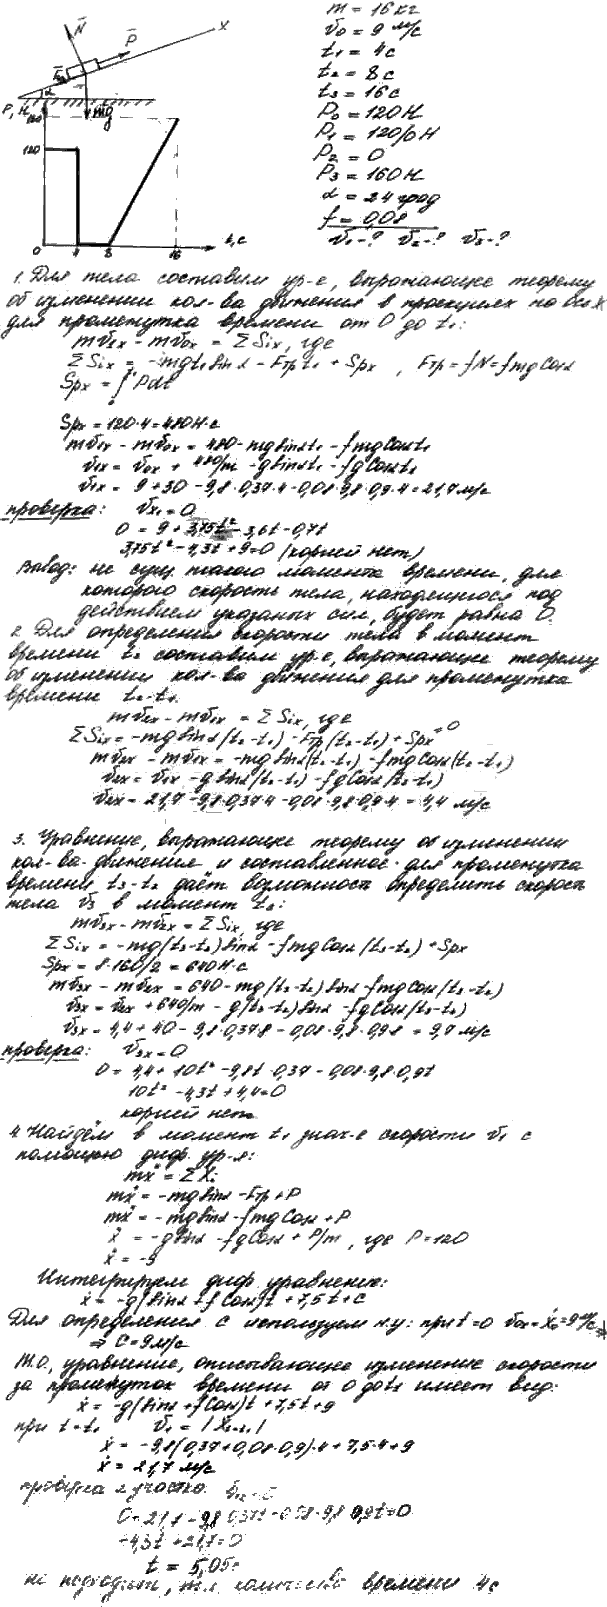 m = 16 кг
v₀ = 9 м/с
t₁ = 4 с
t₂ = 8 с
t₃ = 16 с
P₀ = 120 Н
P₁ = 120/0 Н
P₂ = 0
P₃ = 160 Н
α = 24 град
f = 0,08
v₁-? v₂-? v₃-?
N̄
P̄
X
α
mḡ
P, Н
160
120
0 4 8 16 t, с
1. Для тела составим ур-е, выражающее теорему
об изменении кол-ва движения в проекциях на ось X
для промежутка времени от 0 до t₁:
mv₁ₓ - mv₀ₓ = ΣSᵢₓ, где
ΣSᵢₓ = -mgt₁sinα - Fтр t₁ + Spx , Fтр = fN = fmgcosα
Spx = ∫Pdt
Spx = 120·4 = 480 Н·с
mv₁ₓ - mv₀ₓ = 480 - mgsinαt₁ - fmgcosαt₁
v₁ₓ = v₀ₓ + 480/m - gsinαt₁ - fgcosαt₁
v₁ₓ = 9 + 30 - 9,8·0,37·4 - 0,08·9,8·0,9·4 = 21,7 м/с
проверка: vₓ₁ = 0
0 = 9 + 3,75t² - 3,6t - 0,7t
3,75t² - 4,3t + 9 = 0 (корней нет)
Вывод: не сущ. такого момента времени, для
которого скорость тела, находящегося под
действием указаных сил, будет равна 0.
2. Для определения скорости тела в момент
времени t₂ составим ур-е, выражающее теорему
об изменении кол-ва движения для промежутка
времени t₂-t₁.
mv₂ₓ - mv₁ₓ = ΣSᵢₓ, где
ΣSᵢₓ = -mgsinα(t₂-t₁) - Fтр(t₂-t₁) + Spx = 0
mv₂ₓ - mv₁ₓ = -mgsinα(t₂-t₁) - fmgcosα(t₂-t₁)
v₂ₓ = v₁ₓ - gsinα(t₂-t₁) - fgcosα(t₂-t₁)
v₂ₓ = 21,7 - 9,8·0,37·4 - 0,08·9,8·0,9·4 = 4,4 м/с
3. Уравнение, выражающее теорему об изменении
кол-ва движения и составленное для промежутка
времени t₃-t₂ даёт возможность определить скорость
тела v₃ в момент t₃:
mv₃ₓ - mv₂ₓ = ΣSᵢₓ, где
ΣSᵢₓ = -mg(t₃-t₂)sinα - fmgcosα(t₃-t₂) + Spx
Spx = 8·160/2 = 640 Н·с
mv₃ₓ - mv₂ₓ = 640 - mg(t₃-t₂)sinα - fmgcosα(t₃-t₂)
v₃ₓ = v₂ₓ + 640/m - g(t₃-t₂)sinα - fgcosα(t₃-t₂)
v₃ₓ = 4,4 + 40 - 9,8·0,37·8 - 0,08·9,8·0,9·8 = 9,7 м/с
проверка: v₃ₓ = 0
0 = 4,4 + 10t² - 9,8t·0,37 - 0,08·9,8·0,9t
10t² - 4,3t + 4,4 = 0
корней нет
4. Найдём в момент t₁ знач-е скорости v₁ с
помощью диф. ур-я:
mẍ = ΣXᵢ
mẍ = -mgsinα - Fтр + P
mẍ = -mgsinα - fmgcosα + P
ẍ = -gsinα - fgcosα + P/m , где P = 120
Интегрируем диф. уравнение:
ẋ = -g(sinα + fcosα)t + 7,5t + C
Для определения C используем н.у: при t=0 v₀ₓ = ẋ₀ = 9 м/с ⇒
⇒ C = 9 м/с
Т.О., уравнение, описывающее изменение скорости
за промежуток времени от 0 до t₁ имеет вид:
ẋ = -g(sinα + fcosα)t + 7,5t + 9
при t = t₁
ẋ = -9,8(0,37 + 0,08·0,9)·4 + 7,5·4 + 9
ẋ = 21,7 м/с
проверка 2 участка
0 = 21,7 - 9,8·0,37t - 0,08·9,8·0,9t = 0
-4,3t + 21,7 = 0
t = 5,05с
не подходит, т.к. времени 4с